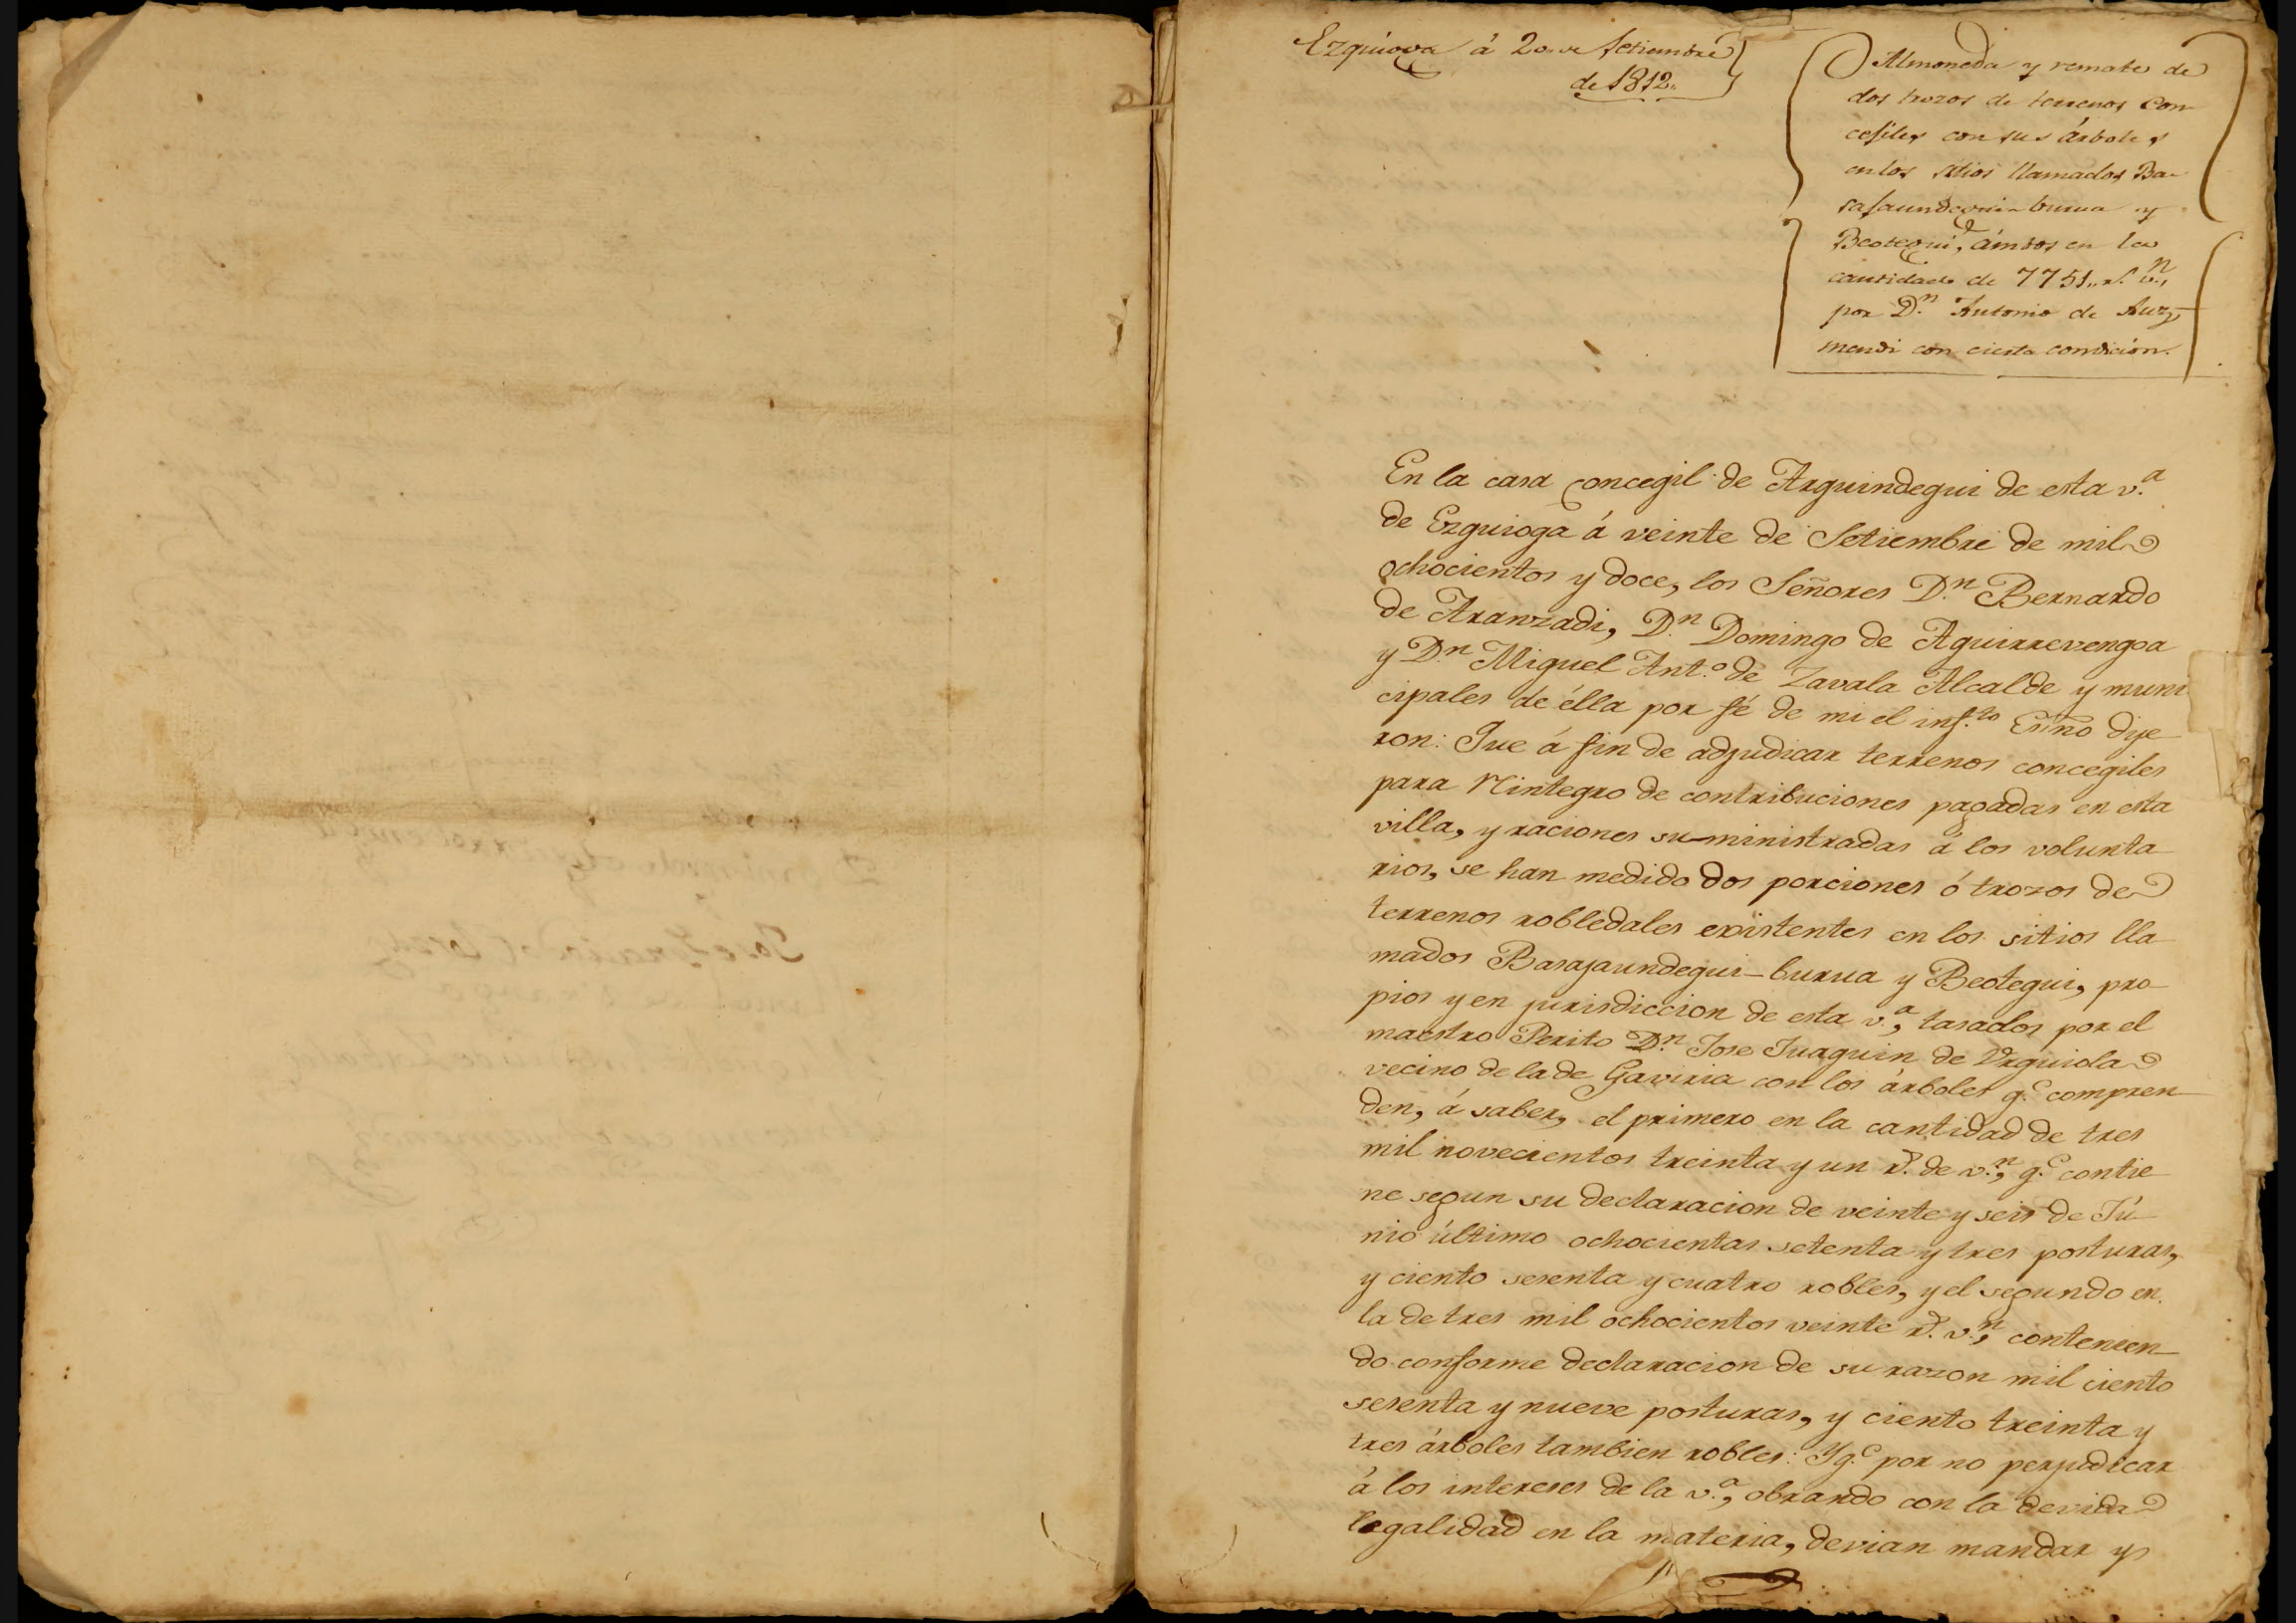 Ezquioga á 20 de Setiembre
de 1812.
Almoneda y remate de
dos trozos de terrenos con-
cejiles con sus árboles
en los sitios llamados Ba-
sajaundegui-burua y
Beotegui, ámbos en la
cantidad de 7751 r.s v.n,
por D.n Antonio de Auz-
mendi con cierta condicion.
En la casa concegil de Arguindegui de esta v.a
de Ezquioga á veinte de Setiembre de mil
ochocientos y doce, los Señores D.n Bernardo
de Aranzadi, D.n Domingo de Aguirrevengoa
y D.n Miguel Ant.o de Zavala Alcalde y muni
cipales de élla por fé de mi el inf.to Esño dije
ron: Que á fin de adjudicar terrenos concegiles
para rintegro de contribuciones pagadas en esta
villa, y raciones su-ministradas á los volunta
rios, se han medido dos porciones ó trozos de
terrenos robledales existentes en los sitios lla
mados Basajaundegui-burua y Beotegui, pro
pios y en jurisdiccion de esta v.a, tasados por el
maestro Perito D.n Jose Juaquin de Urquiola
vecino de la de Gaviria con los árboles q.e compren
den, á saber, el primero en la cantidad de tres
mil novecientos treinta y un r.s de v.n, q.e contie
ne segun su declaracion de veinte y seis de Jú
nio último ochocientas setenta y tres posturas,
y ciento sesenta y cuatro robles, y el segundo en
la de tres mil ochocientos veinte r.s v.n, contenien
do conforme declaracion de su razon mil ciento
sesenta y nueve posturas, y ciento treinta y
tres árboles tambien robles: Y q.e por no perjudicar
á los intereses de la v.a, obrando con la devida
legalidad en la materia, devian mandar y